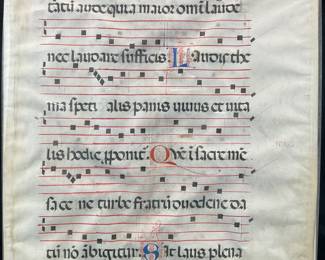 tatū aude quia maior omī laude
nec laudare sufficis Laudis the
ma speti alis panis uiuus et uita
lis hodie pponit̄ Que ī sacre mē
sa ce ne turbe fratrū duodene da
tū nō ābigitur Sit laus plena